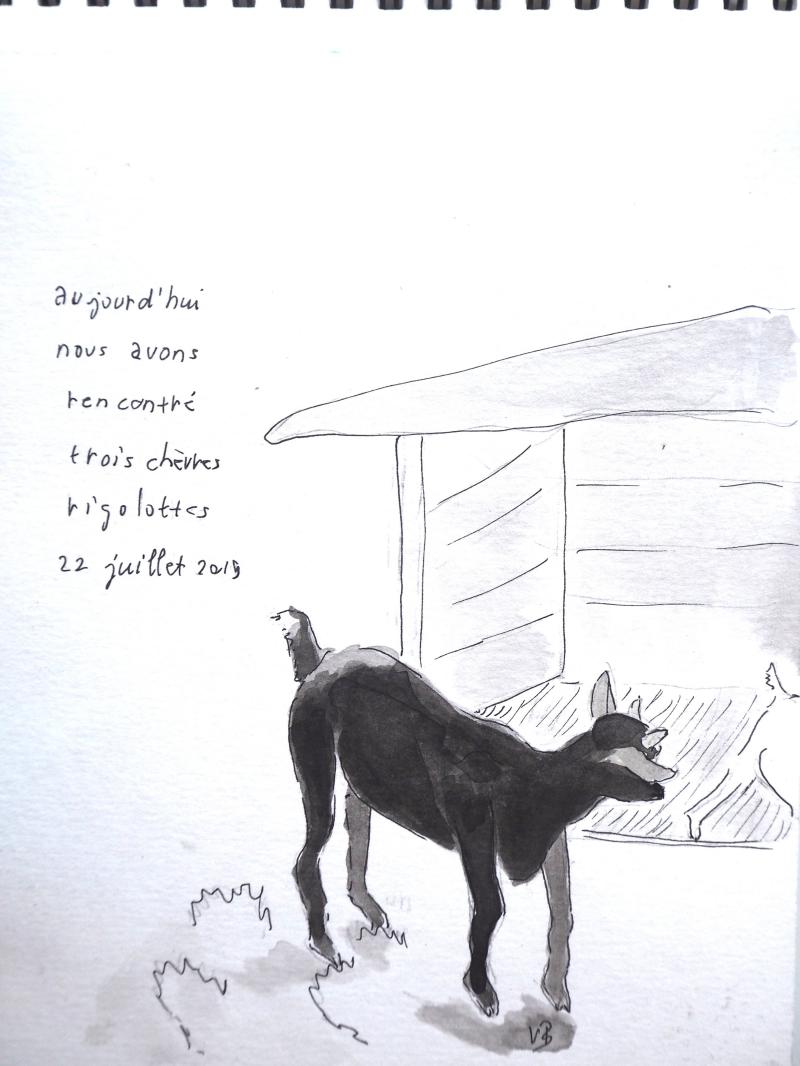 aujourd'hui
nous avons
rencontré
trois chèvres
rigolottes
22 juillet 2019
VB